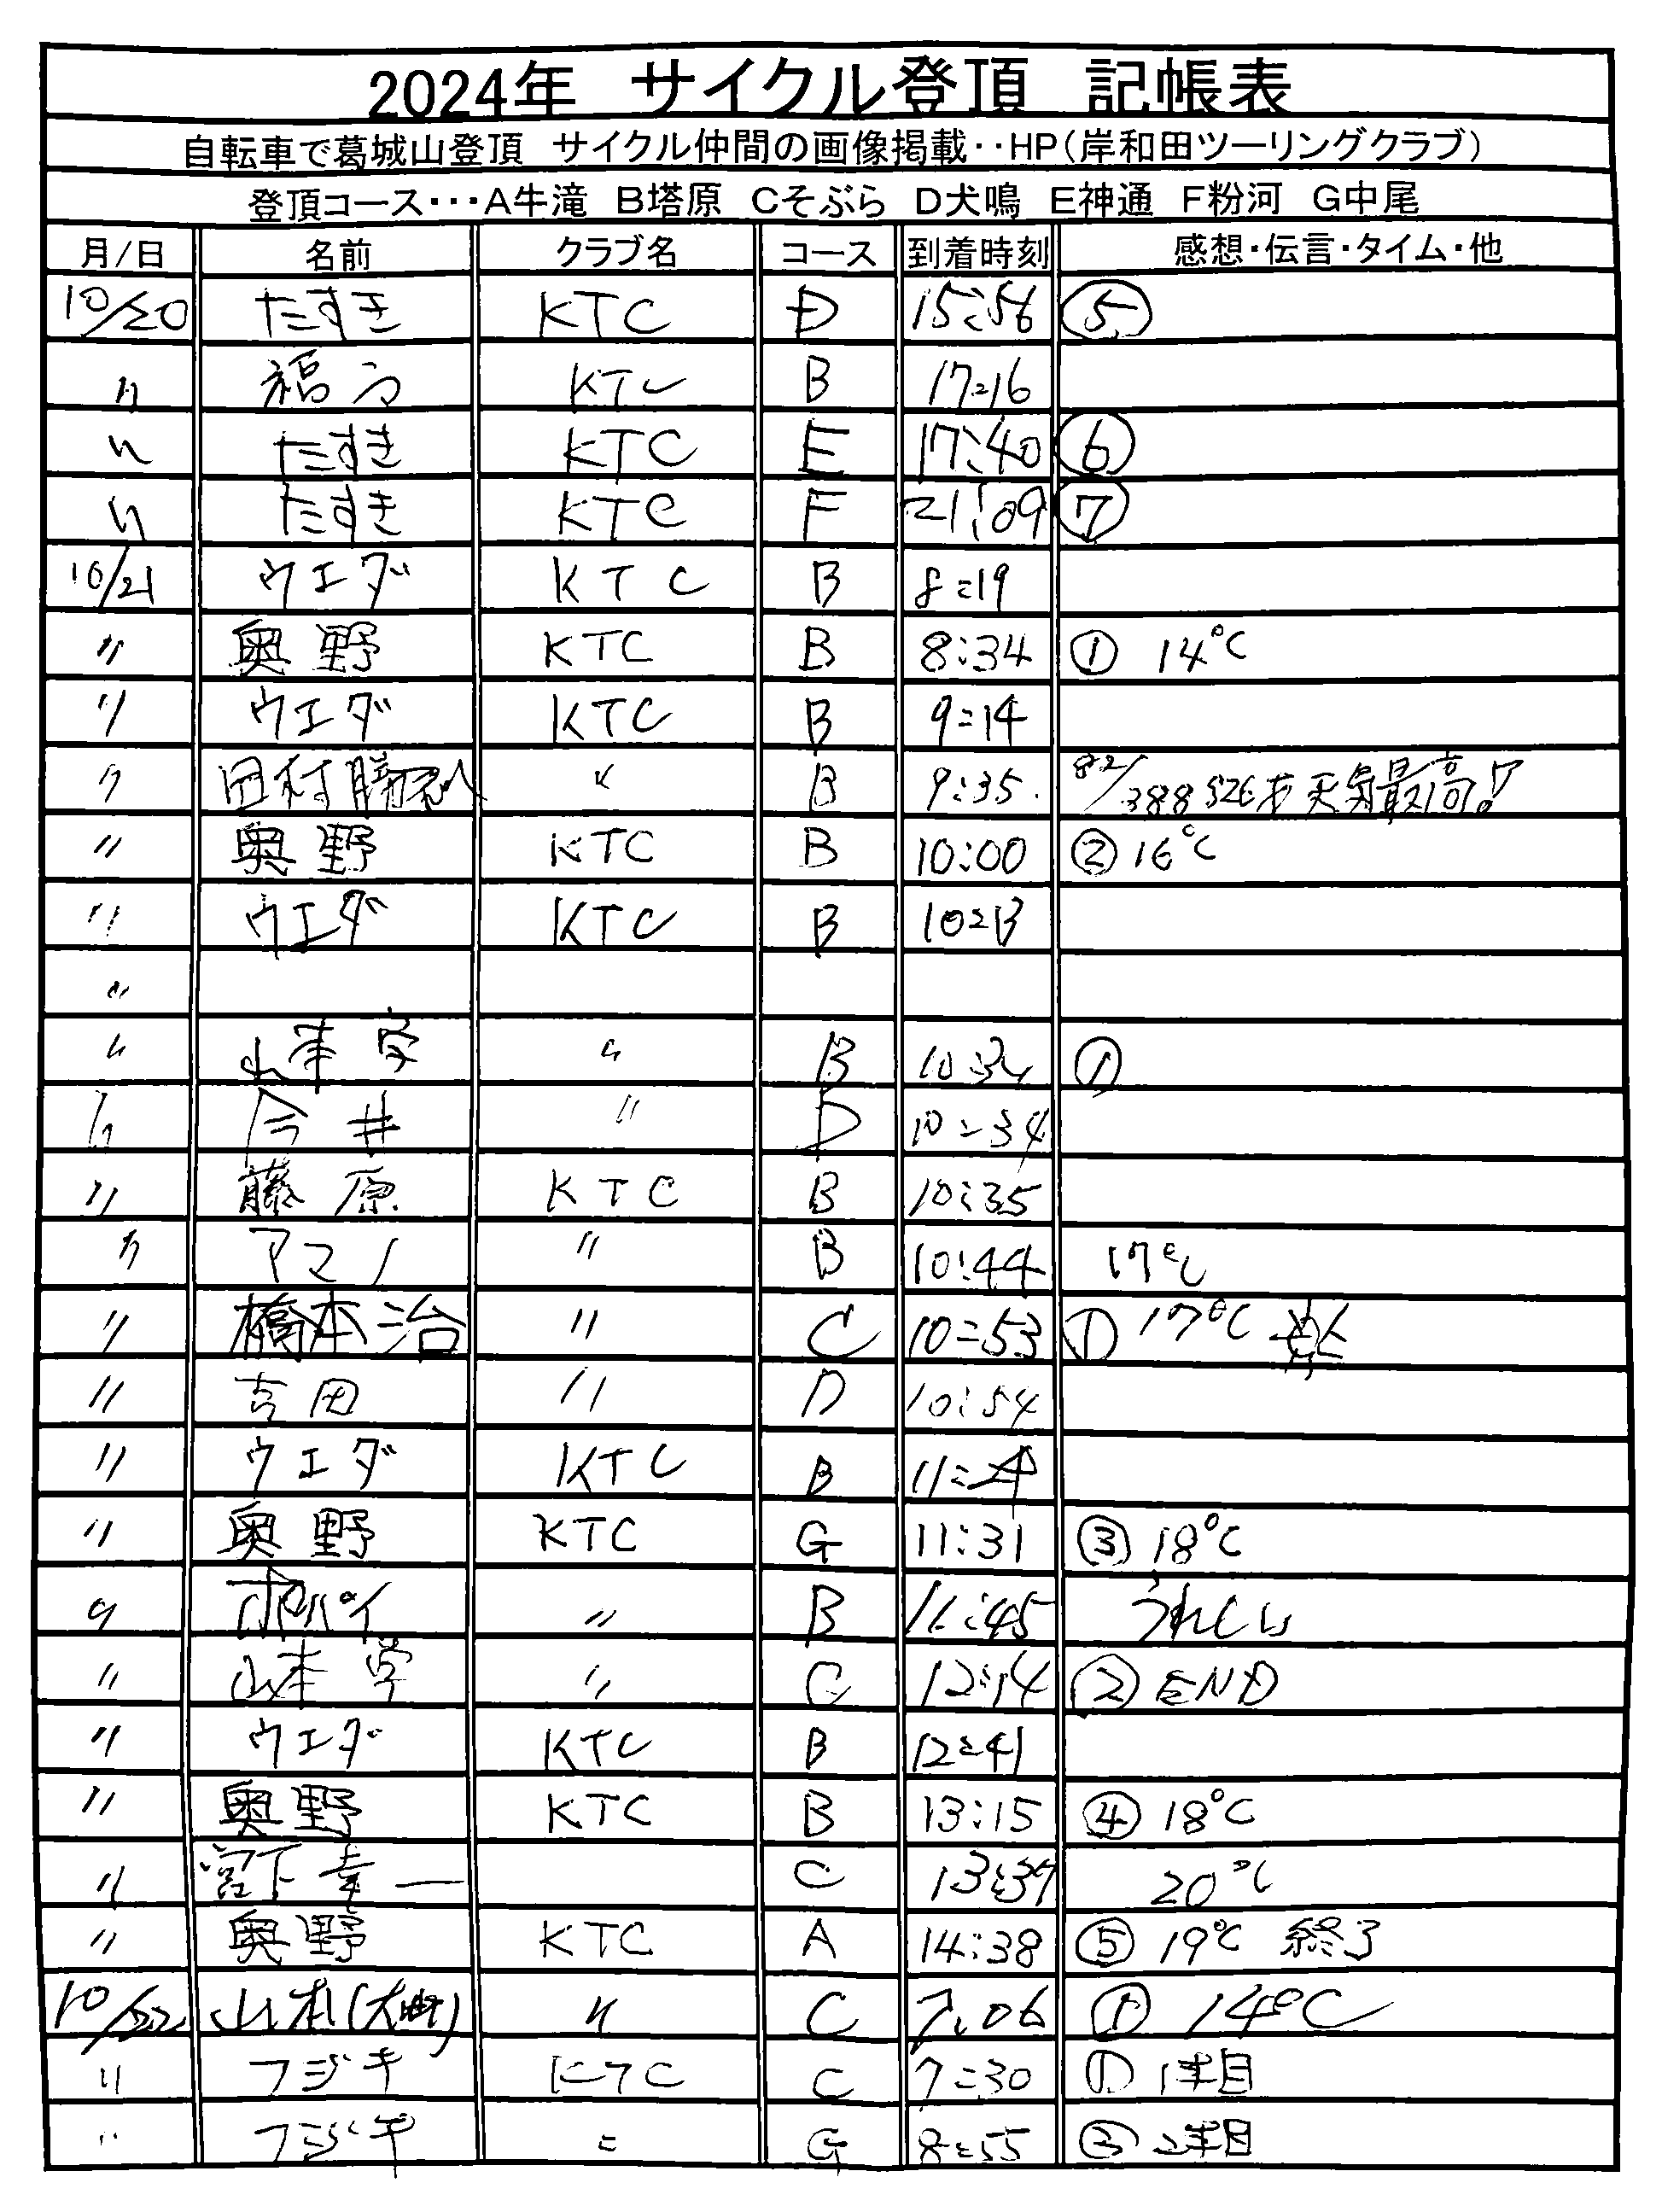 2024年 サイクル登頂 記帳表
自転車で葛城山登頂 サイクル仲間の画像掲載‥HP(岸和田ツーリングクラブ)
登頂コース・・・A牛滝 B塔原 Cそぶら D犬鳴 E神通 F粉河 G中尾
月/日 名前 クラブ名 コース 到着時刻 感想・伝言・タイム・他
10/20 たすき KTC D 15:56 ⑤
〃 福 KTC B 17:16
〃 たすき KTC E 17:40 ⑥
〃 たすき KTC F 21:09 ⑦
10/21 ウエダ KTC B 8:19
〃 奥野 KTC B 8:34 ① 14℃
〃 ウエダ KTC B 9:14
〃 田村勝 〃 B 9:35 82/388 天気最高!
〃 奥野 KTC B 10:00 ② 16℃
〃 ウエダ KTC B 10:13
〃
〃 山本 学 〃 B 10:34 ①
〃 今井 〃 D 10:34
〃 藤原 KTC B 10:35
〃 アマノ 〃 B 10:44 17℃
〃 橋本治 〃 C 10:53 ① 17℃
〃 吉田 〃 D 10:54
〃 ウエダ KTC B 11:
〃 奥野 KTC G 11:31 ③ 18℃
〃 ポパイ 〃 B 11:45 うれしい
〃 山本 学 〃 C 12:14 ② END
〃 ウエダ KTC B 12:41
〃 奥野 KTC B 13:15 ④ 18℃
〃 宮下幸一 C 13:37 20℃
〃 奥野 KTC A 14:38 ⑤ 19℃ 終了
10/22 山本(大町) 〃 C 7:06 ① 14℃
〃 フジキ KTC C 7:30 ① 1本目
〃 フジキ 〃 G 8:55 ② 2本目